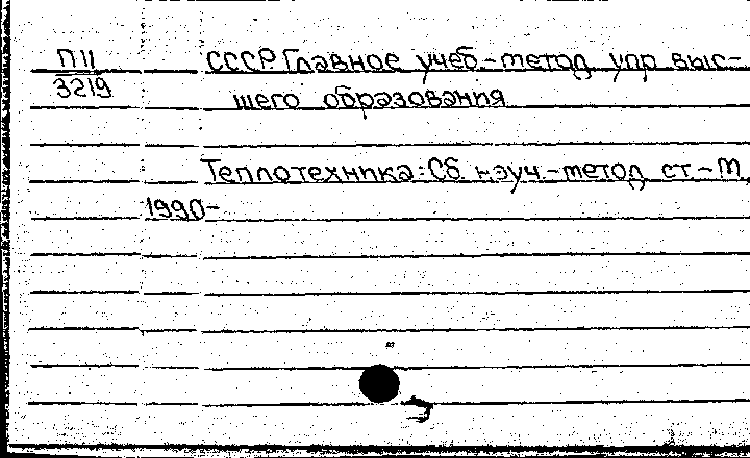 П11
3219
СССР Главное учеб-метод упр выс-
шего образования
Теплотехника: Сб науч.-метод ст - М,
1990-